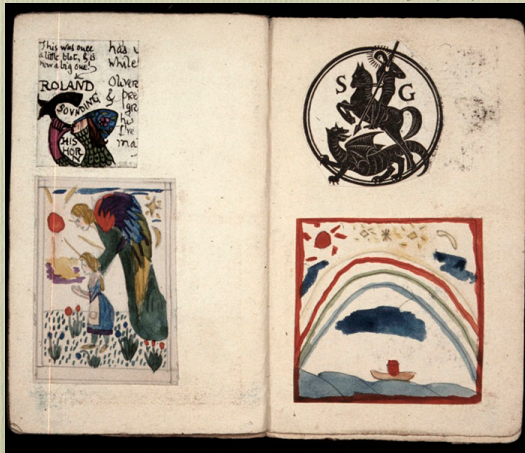 This was once
a little blot, & is
now a big one!
&
ROLAND
SOUNDING
HIS
HOR
has
while
Oliver
&
his
S G